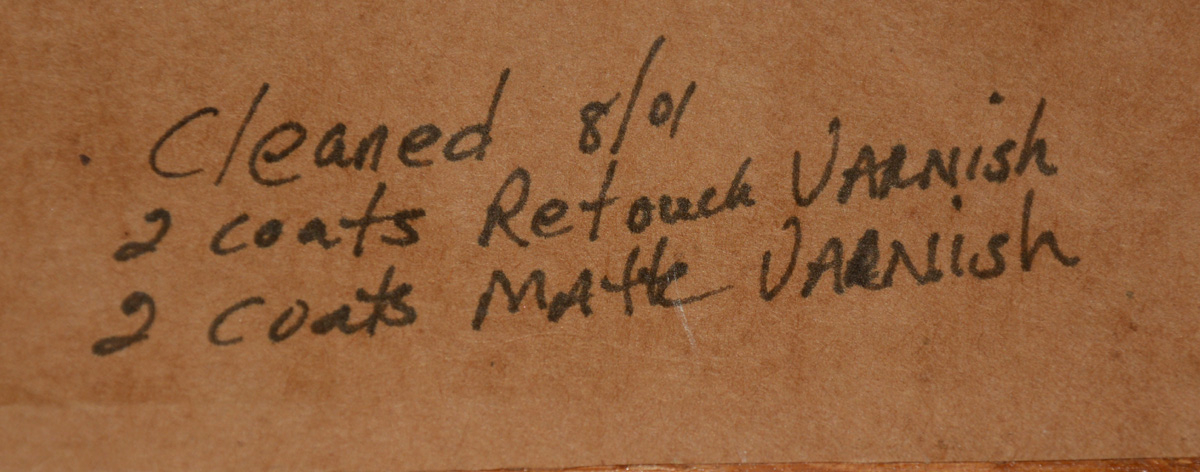 Cleaned 8/01
2 coats Retouch VARNish
2 coats MAtte VARNish